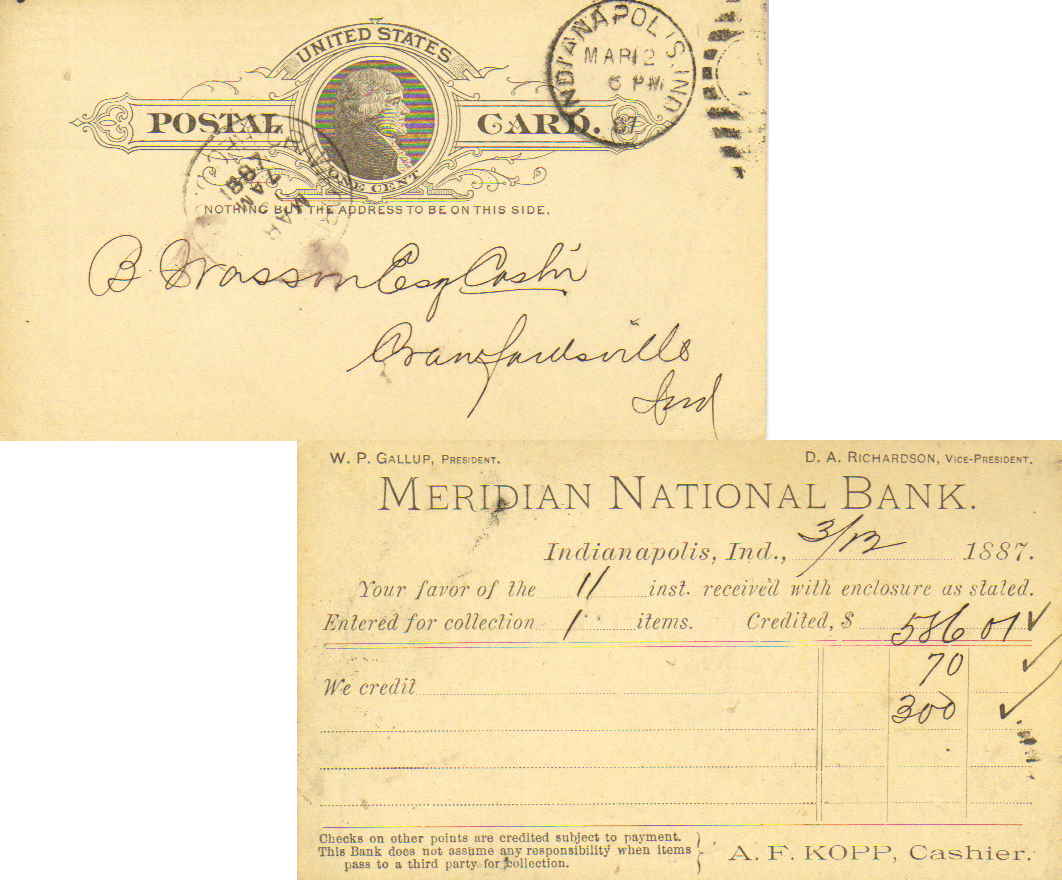 UNITED STATES
POSTAL CARD.
ONE CENT
NOTHING BUT THE ADDRESS TO BE ON THIS SIDE.
INDIANAPOLIS. IND.
MAR 12
6 PM
87
MAR
7 AM
1887
B. Wasson Esq Cash'r
Crawfordsville
Ind
W. P. GALLUP, PRESIDENT.
D. A. RICHARDSON, VICE-PRESIDENT.
MERIDIAN NATIONAL BANK.
Indianapolis, Ind., 3/12 1887.
Your favor of the 11 inst. received with enclosure as stated.
Entered for collection 1 items. Credited, $ 586 01
70
We credit
300
Checks on other points are credited subject to payment.
This Bank does not assume any responsibility when items
pass to a third party for collection.
A. F. KOPP, Cashier.